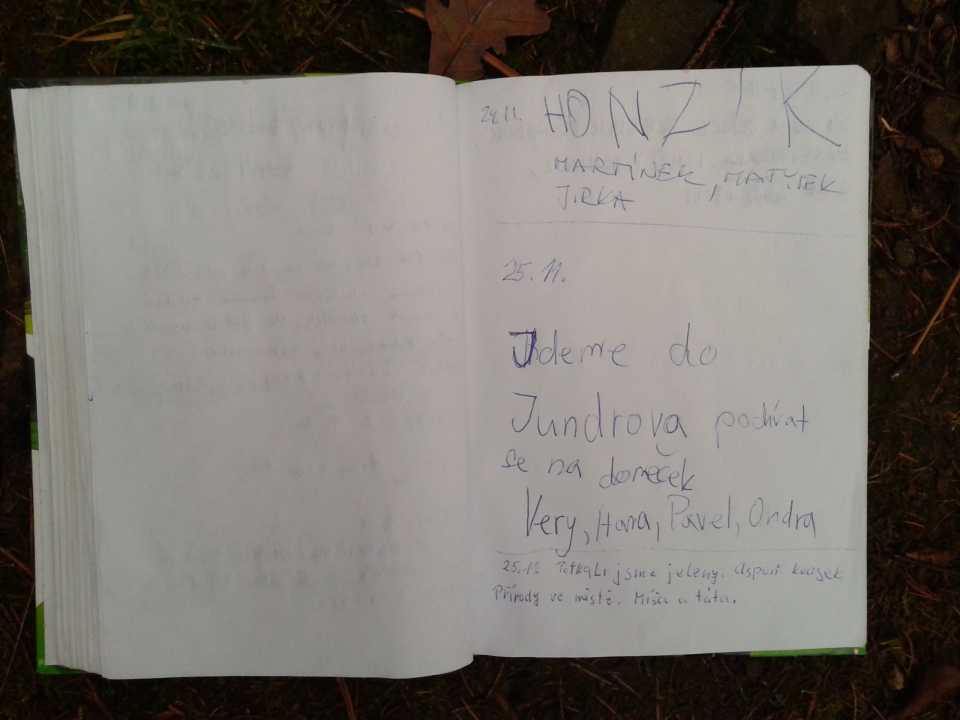 24.11. HONZÍK
MARTÍNEK, MATÝSEK
JIRKA
25.11.
Jdeme do
Jundrova podívat
se na domeček
Very, Hana, Pavel, Ondra
25.11. Potkali jsme jeleny. Aspoň kousek
Přírody ve městě. Míša a táta.